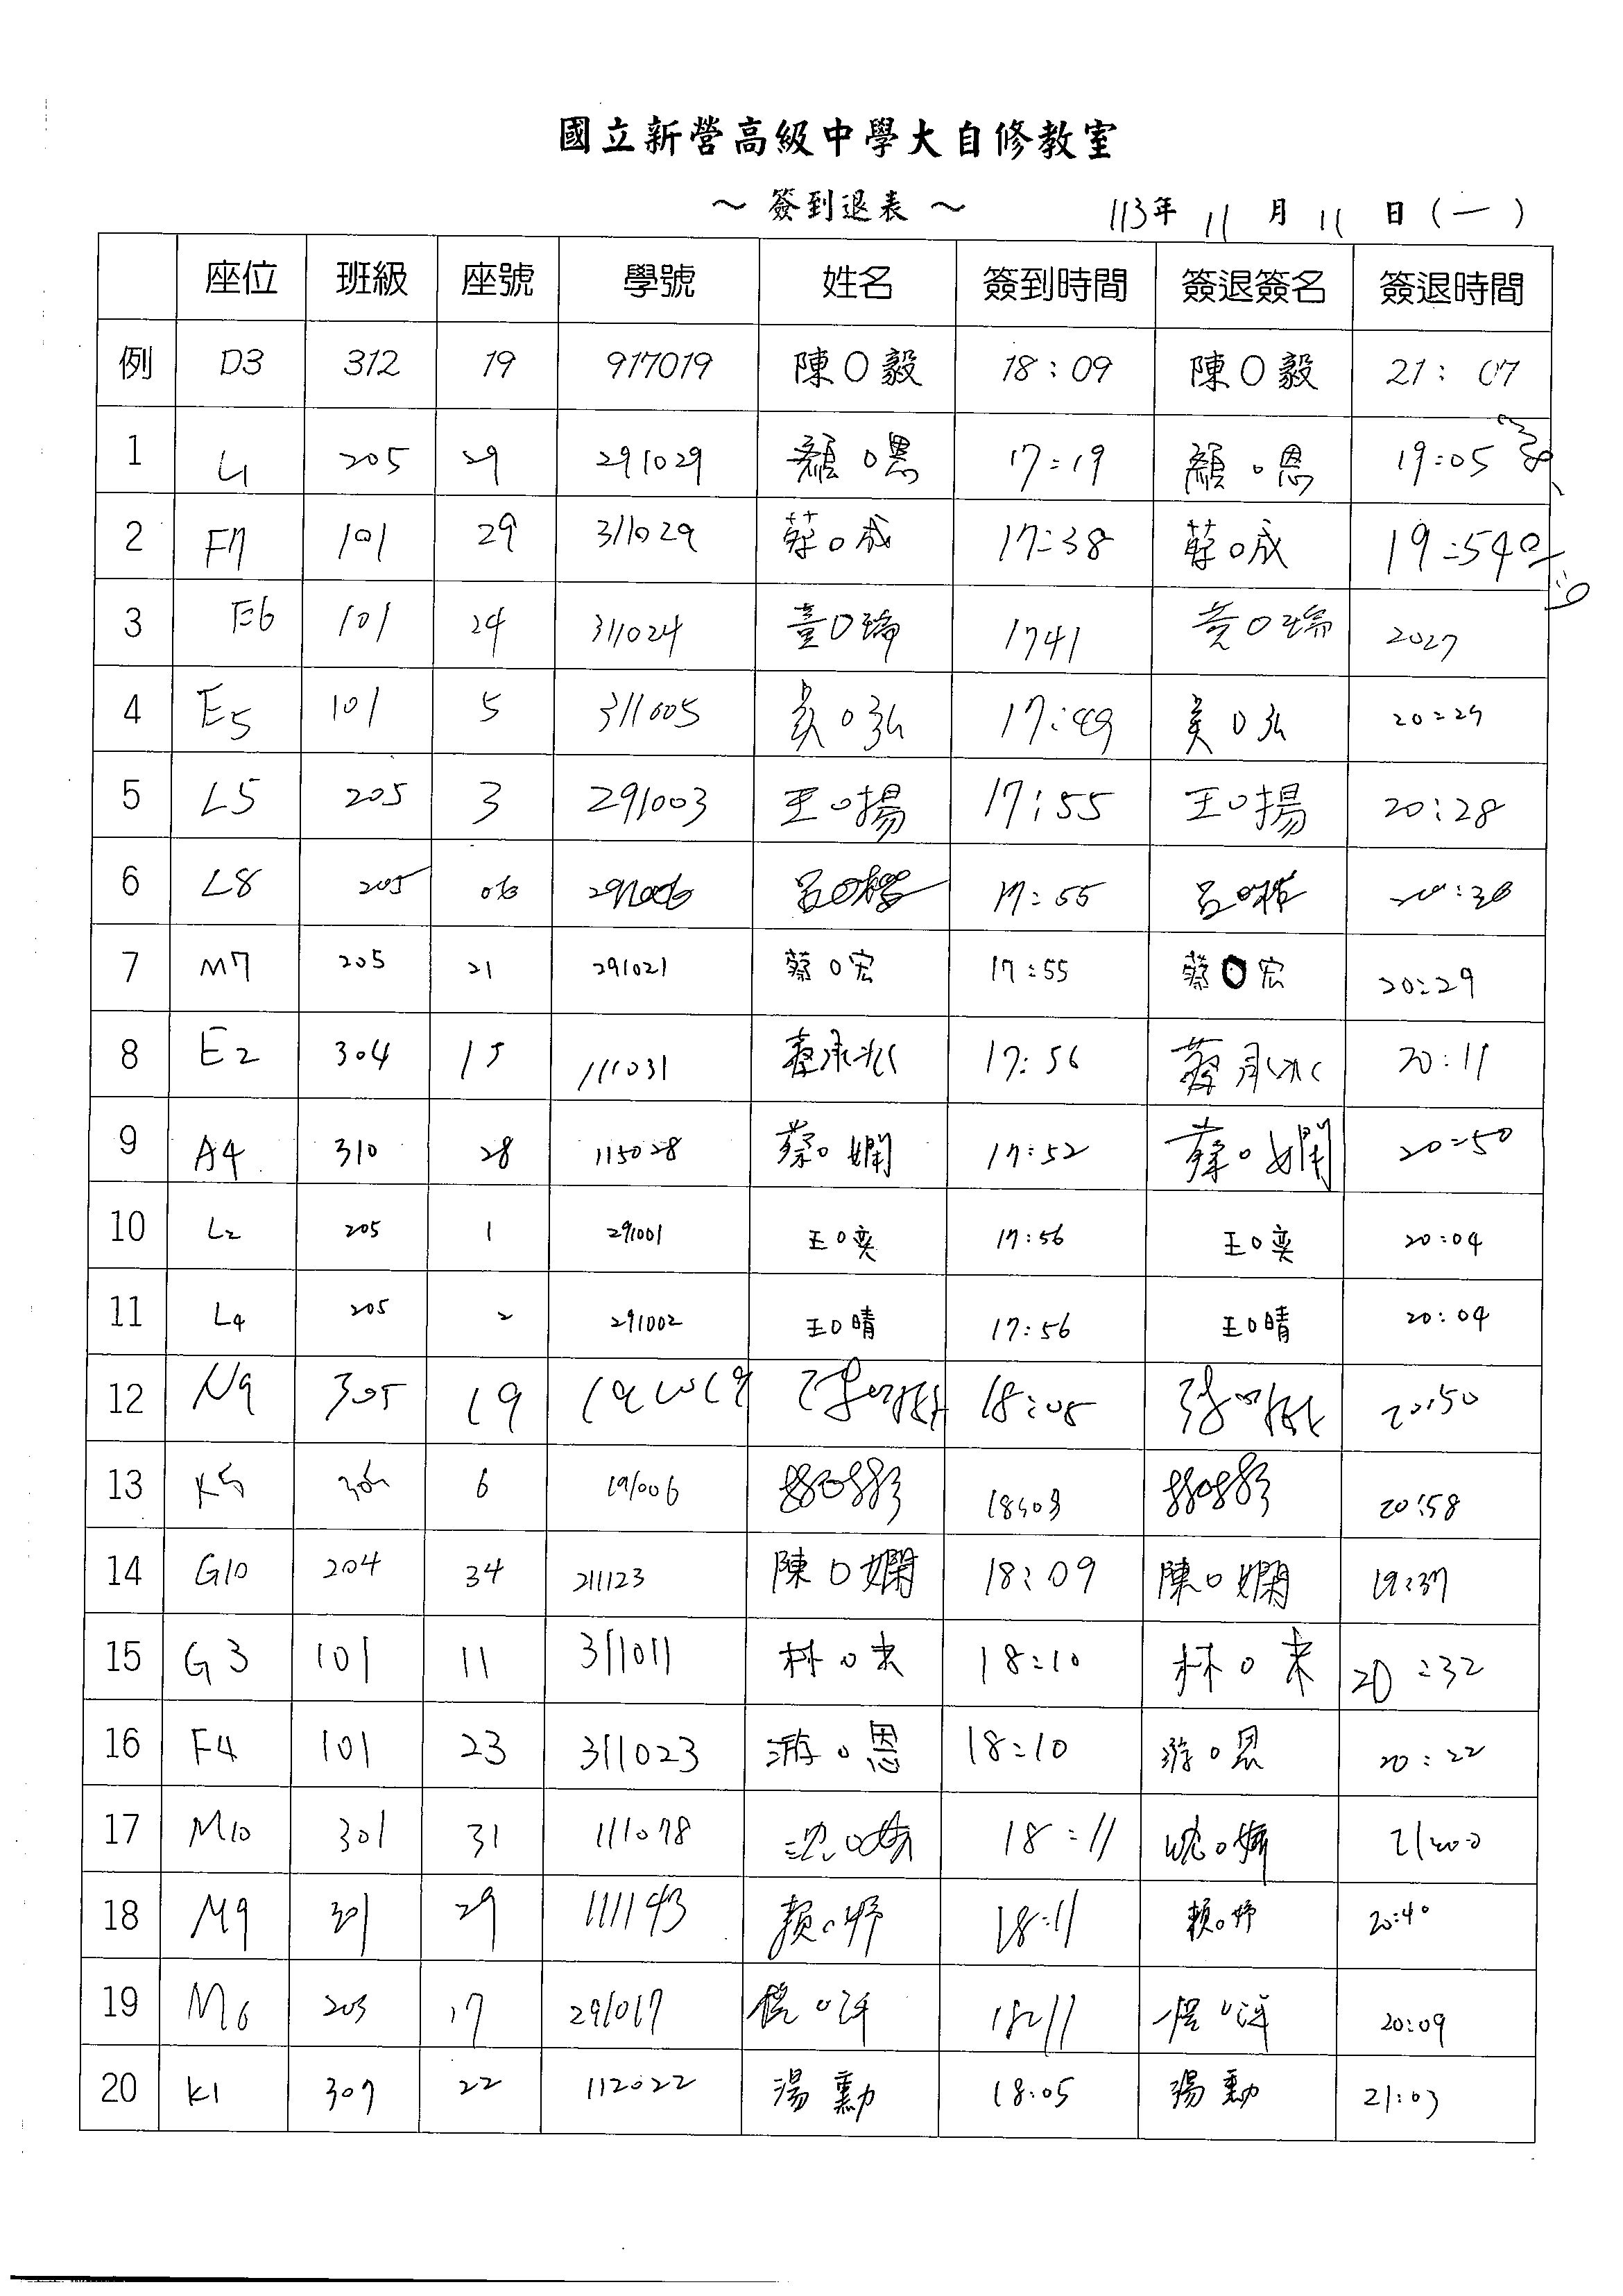 國立新營高級中學大自修教室
～ 簽到退表 ～ 113年 11 月 11 日 (一)
座位 班級 座號 學號 姓名 簽到時間 簽退簽名 簽退時間
例 D3 312 19 917019 陳○毅 18:09 陳○毅 21:07
1 L1 205 29 291029 顏○恩 17:19 顏○恩 19:05
2 F7 101 29 311029 蔡○成 17:38 蔡○成 19:54
3 E6 101 24 311024 黃○瑜 1741 黃○瑜 2027
4 E5 101 5 311005 吳○弘 17:49 吳○弘 20:29
5 L5 205 3 291003 王○揚 17:55 王○揚 20:28
6 L8 205 06 291006 呂○ 17:55 呂○ 20:30
7 M7 205 21 291021 蔡○宏 17:55 蔡○宏 20:29
8 E2 304 15 111031 蔡承 17:56 蔡承 20:11
9 A4 310 28 115028 蔡○嫻 17:52 蔡○嫻 20:50
10 L2 205 1 291001 王○奕 17:56 王○奕 20:04
11 L4 205 2 291002 王○晴 17:56 王○晴 20:04
12 N9 305 19 191019 18:08 20:50
13 K5 305 6 191006 18:08 20:58
14 G10 204 34 211123 陳○嫻 18:09 陳○嫻 19:37
15 G3 101 11 311011 林○ 18:10 林○ 20:32
16 F4 101 23 311023 游○恩 18:10 游○恩 20:22
17 M10 301 31 111078 沈○ 18:11 沈○ 21:00
18 M9 301 29 111143 賴○妤 18:11 賴○妤 20:40
19 M6 205 17 291017 ○洋 18:11 ○洋 20:09
20 K1 307 22 112022 湯勳 18:05 湯勳 21:03